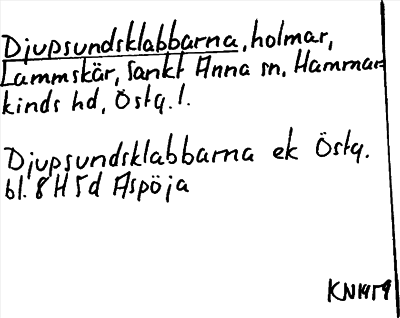 Djupsundsklabbarna, holmar,
Lammskär, Sankt Anna sn, Hammar-
kinds hd, Östg. l.
Djupsundsklabbarna ek Östg.
bl. 8 H 5d Aspöja
KN1959